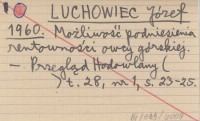 LUCHOWIEC Józef
1960. Możliwość podniesienia
rentowności owcy górskiej.
- Przegląd Hodowlany (
) t. 28, nr 1, s. 23-25.